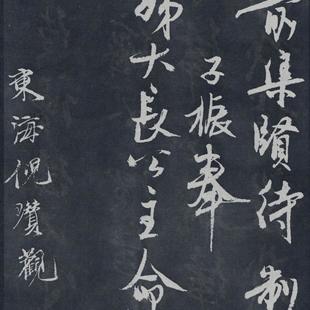 前集賢待制
子振奉
姊大長公主命
東海倪瓚觀